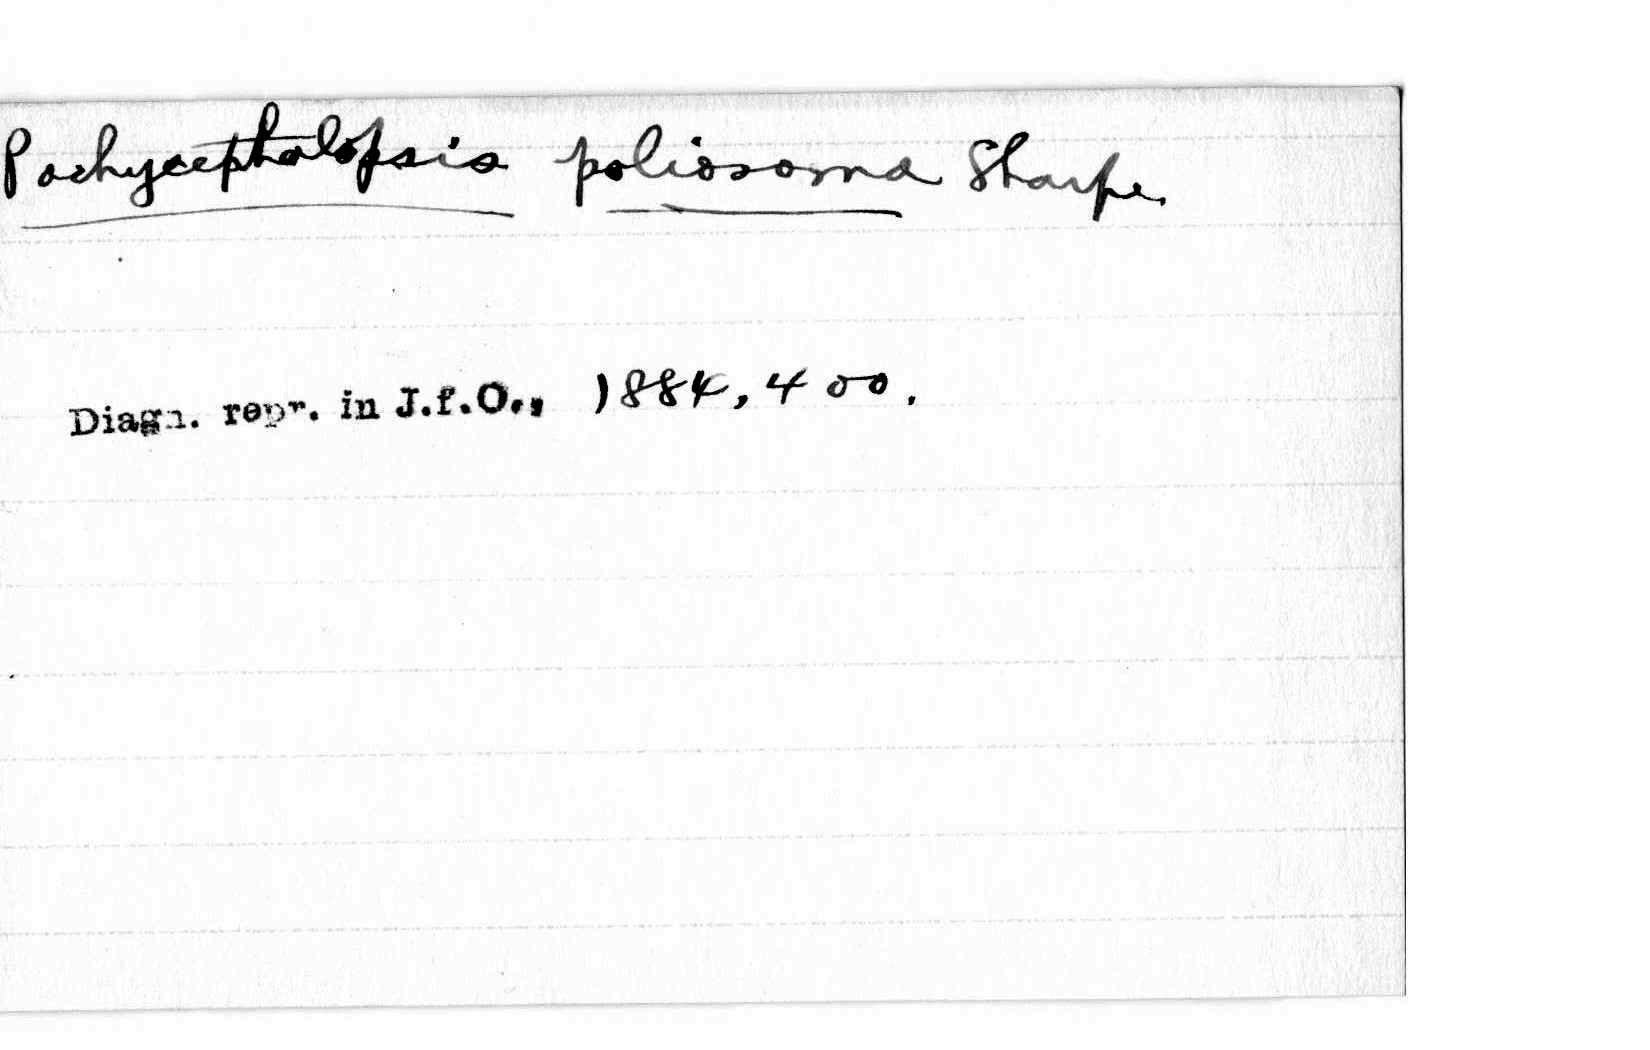 Pachycephalopsis poliosoma Sharpe.
Diagn. repr. in J.f.O., 1884, 400.